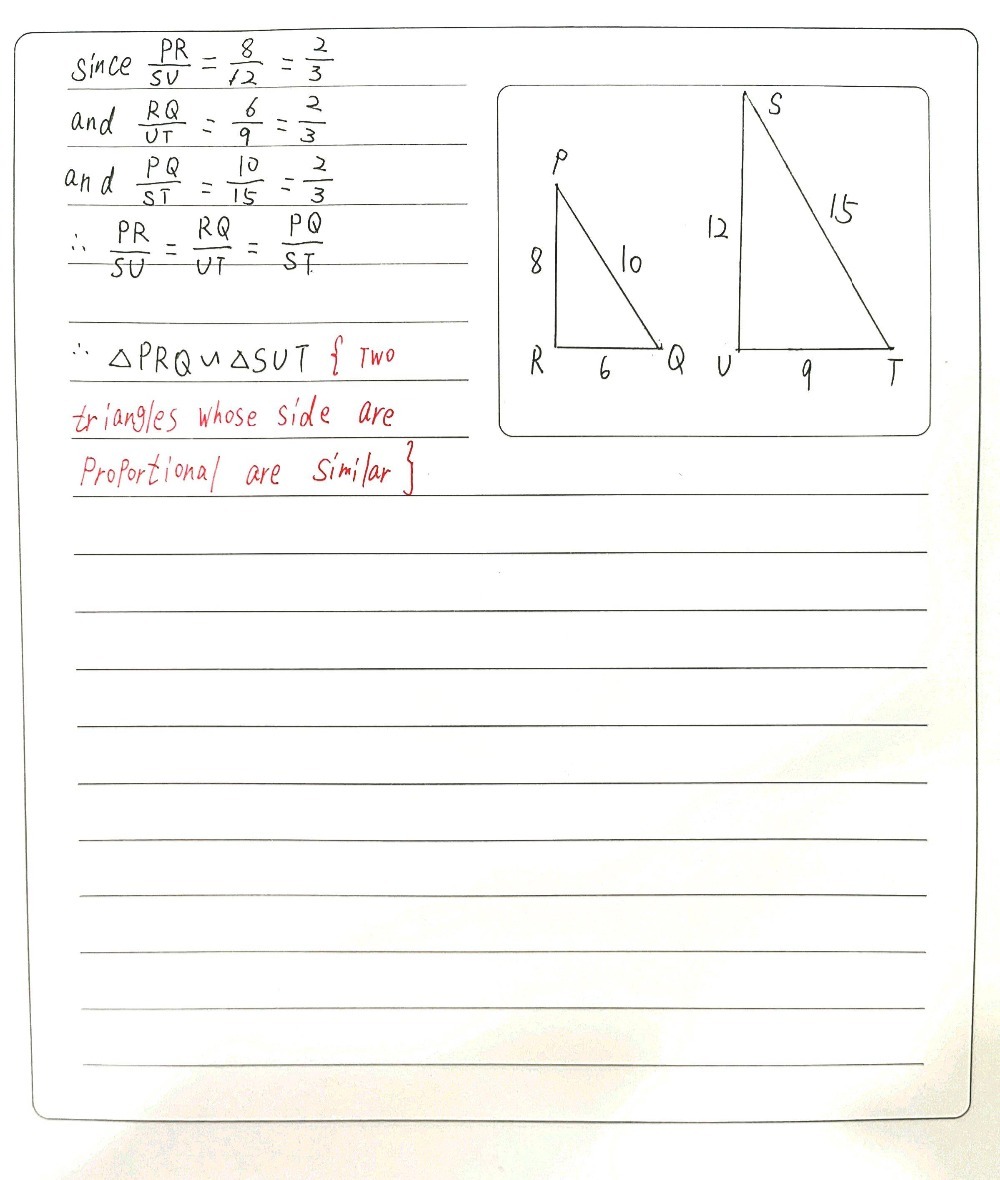 since PR/SU = 8/12 = 2/3
and RQ/UT = 6/9 = 2/3
and PQ/ST = 10/15 = 2/3
∴ PR/SU = RQ/UT = PQ/ST
∴ △PRQ ∽ △SUT { Two
triangles whose side are
Proportional are similar }
S
P
15
12
8
10
R
6
Q
U
9
T